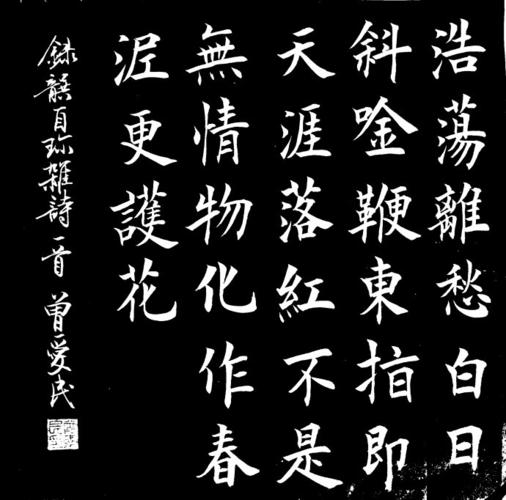 浩蕩離愁白日
斜唫鞭東指即
天涯落紅不是
無情物化作春
泥更護花
錄龔自珍雜詩一首 曾愛民